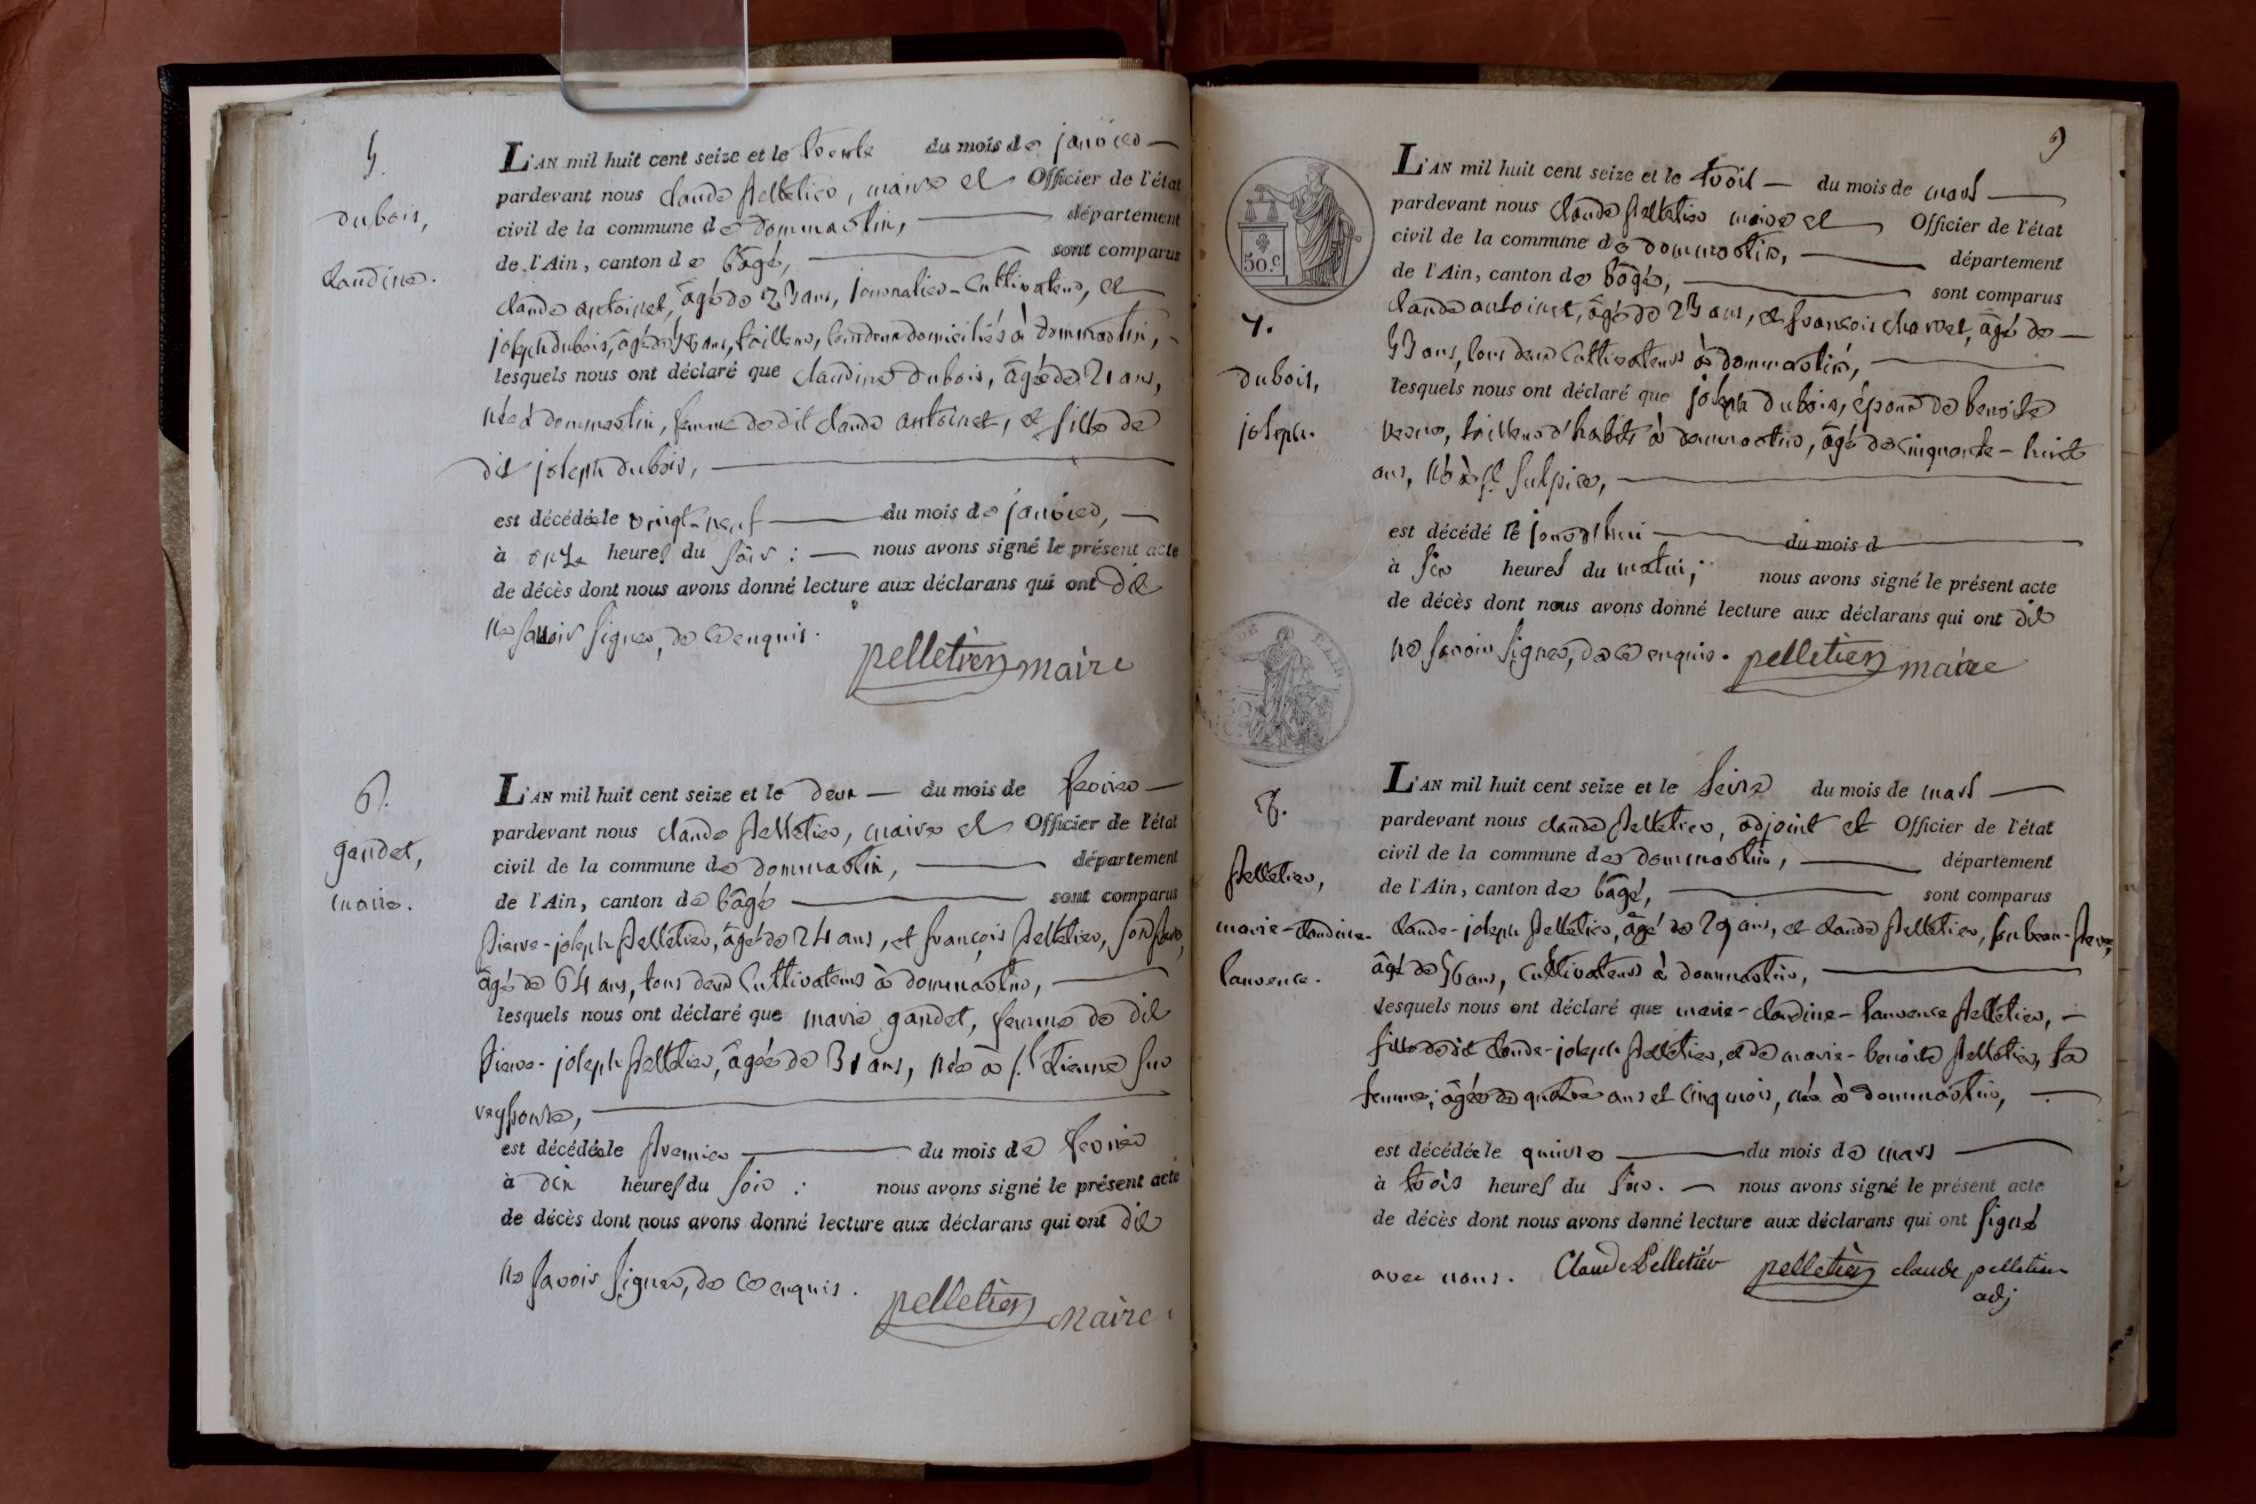 5.
dubois,
claudine.
L'AN mil huit cent seize et le trente du mois de janvier
pardevant nous claude pelletier, maire et Officier de l'état
civil de la commune de dommartin, département
de l'Ain, canton de bâgé, sont comparus
claude antoinet, âgé de 23 ans, journalier-cultivateur, et
joseph dubois, âgé de ans, tailleur, tous deux domiciliés à dommartin,
lesquels nous ont déclaré que claudine dubois, âgée de 21 ans,
née à dommartin, femme de dit claude antoinet, et fille de
dit joseph dubois,
est décédée le vingt-neuf du mois de janvier,
à onze heures du soir : nous avons signé le présent acte
de décès dont nous avons donné lecture aux déclarans qui ont dit
ne savoir signer, de ce enquis.
pelletier maire
6.
gandet,
marie.
L'AN mil huit cent seize et le deux du mois de fevrier
pardevant nous claude pelletier, maire et Officier de l'état
civil de la commune de dommartin, département
de l'Ain, canton de bâgé sont comparus
pierre-joseph pelletier, âgé de 24 ans, et françois pelletier, son père,
âgé de 64 ans, tous deux cultivateurs à dommartin,
lesquels nous ont déclaré que marie gandet, femme de dit
pierre-joseph pelletier, âgée de 31 ans, née à st. étienne sur
reyssouse,
est décédée le premier du mois de fevrier
à dix heures du soir : nous avons signé le présent acte
de décès dont nous avons donné lecture aux déclarans qui ont dit
ne savoir signer, de ce enquis.
pelletier maire
9
50.c
7.
dubois,
joseph.
L'AN mil huit cent seize et le trois du mois de mars
pardevant nous claude pelletier maire et Officier de l'état
civil de la commune de dommartin, département
de l'Ain, canton de bâgé, sont comparus
claude antoinet, âgé de 23 ans, et françois charvet, âgé de
53 ans, tous deux cultivateurs à dommartin,
lesquels nous ont déclaré que joseph dubois, époux de benoite
tailleur d'habits à dommartin, âgé de cinquante-huit
ans, né à st. sulpice,
est décédé le jourd'hui du mois d
à six heures du matin; nous avons signé le présent acte
de décès dont nous avons donné lecture aux déclarans qui ont dit
ne savoir signer, de ce enquis. pelletier maire
8.
pelletier,
marie-claudine-
laurence.
L'AN mil huit cent seize et le seize du mois de mars
pardevant nous claude pelletier, adjoint et Officier de l'état
civil de la commune de dommartin, département
de l'Ain, canton de bâgé, sont comparus
claude-joseph pelletier, âgé de 29 ans, et claude pelletier, son beau-père,
âgé de 56 ans, cultivateurs à dommartin,
lesquels nous ont déclaré que marie-claudine-laurence pelletier,
fille de dit claude-joseph pelletier, et de marie-benoite pelletier, sa
femme; âgée de quatre ans et cinq mois, née à dommartin,
est décédée le quinze du mois de mars
à trois heures du soir. nous avons signé le présent acte
de décès dont nous avons donné lecture aux déclarans qui ont signé
avec nous. Claude Pelletier pelletier claude pelletier
adj